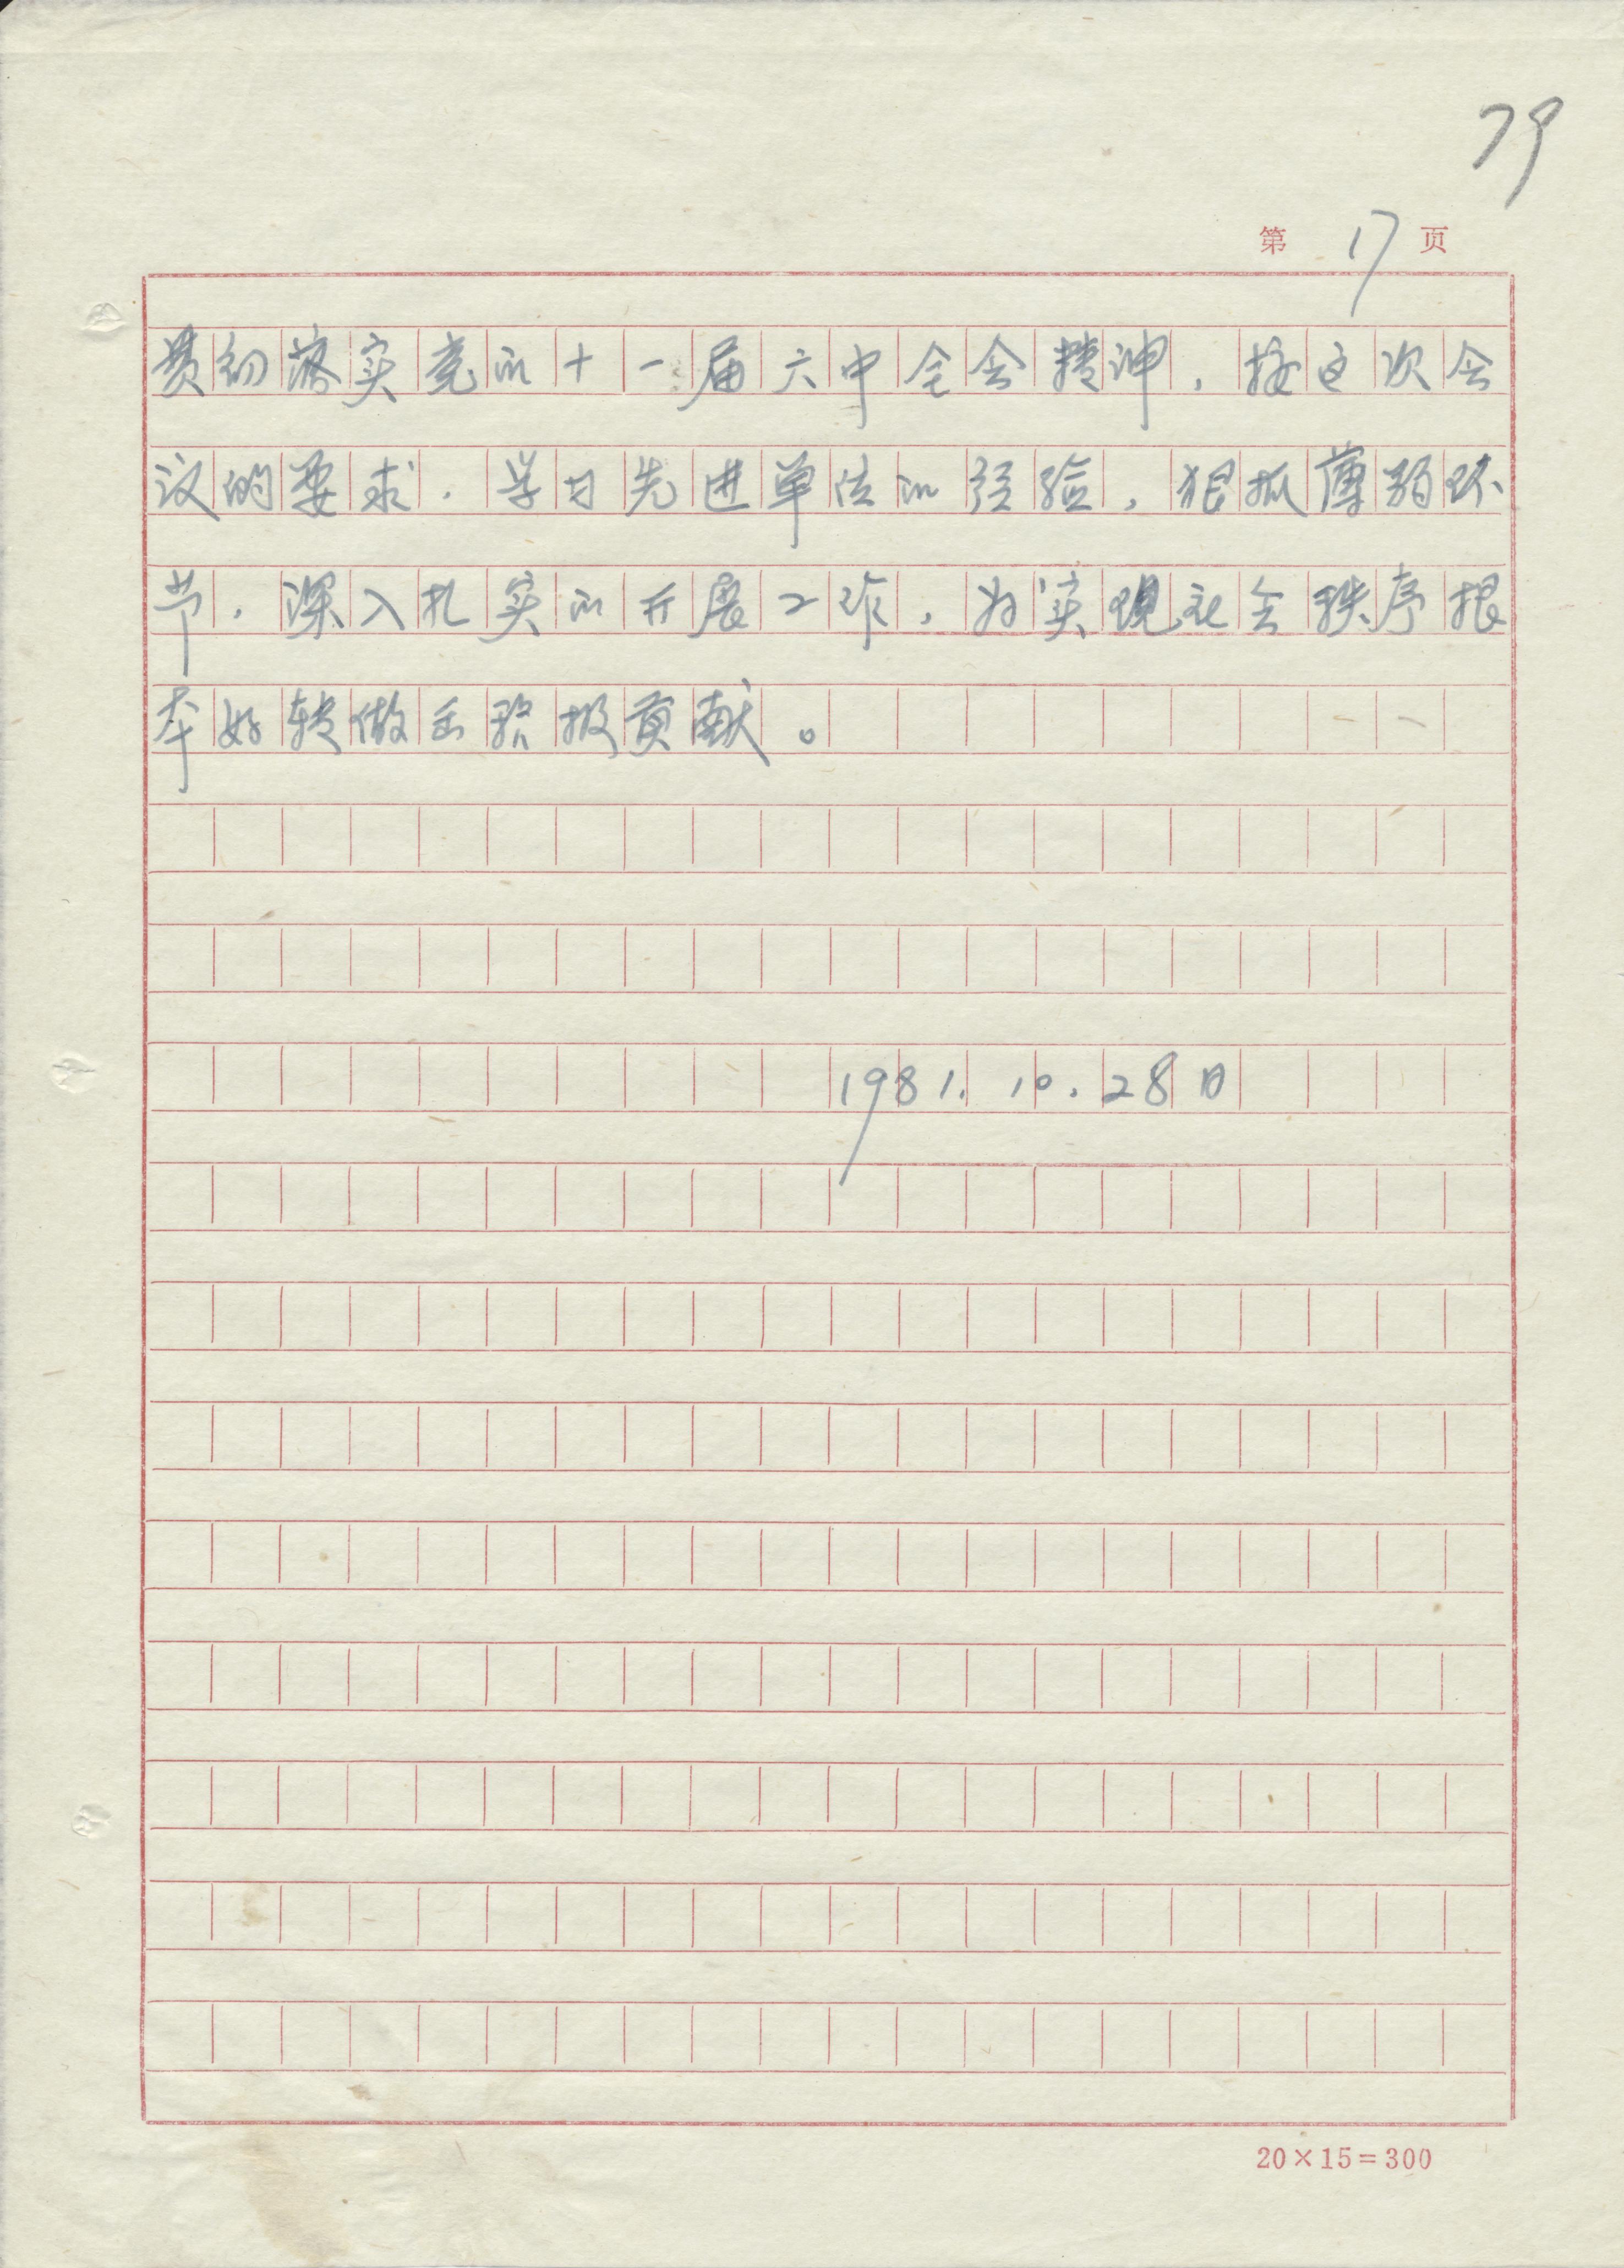 79
第 17 页
贯彻落实党的十一届六中全会精神，按这次会
议的要求，学习先进单位的经验，狠抓薄弱环
节，深入扎实的开展工作，为实现社会秩序根
本好转做出积极贡献。
1981.10.28日
20×15=300